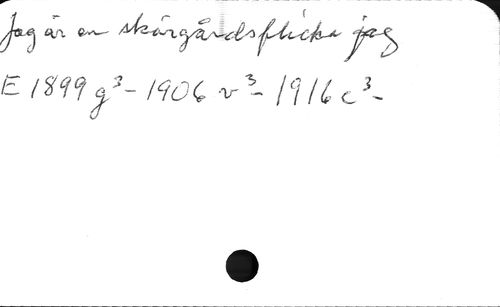 Jag är en skärgårdsflicka jag
E 1899 g³ - 1906 v³ - 1916 c³ -